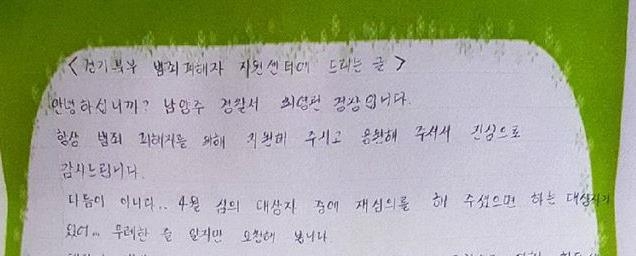 <경기북부 범죄피해자 지원센터에 드리는 글>
안녕하십니까? 남양주 경찰서 경장입니다.
항상 범죄 피해자를 위해 지원해 주시고 응원해 주셔서 진심으로
감사드립니다.
다름이 아니라.. 4월 심의 대상자 중에 재심의를 해 주셨으면 하는 대상자가
있어... 무례한 줄 알지만 요청해 봅니다.